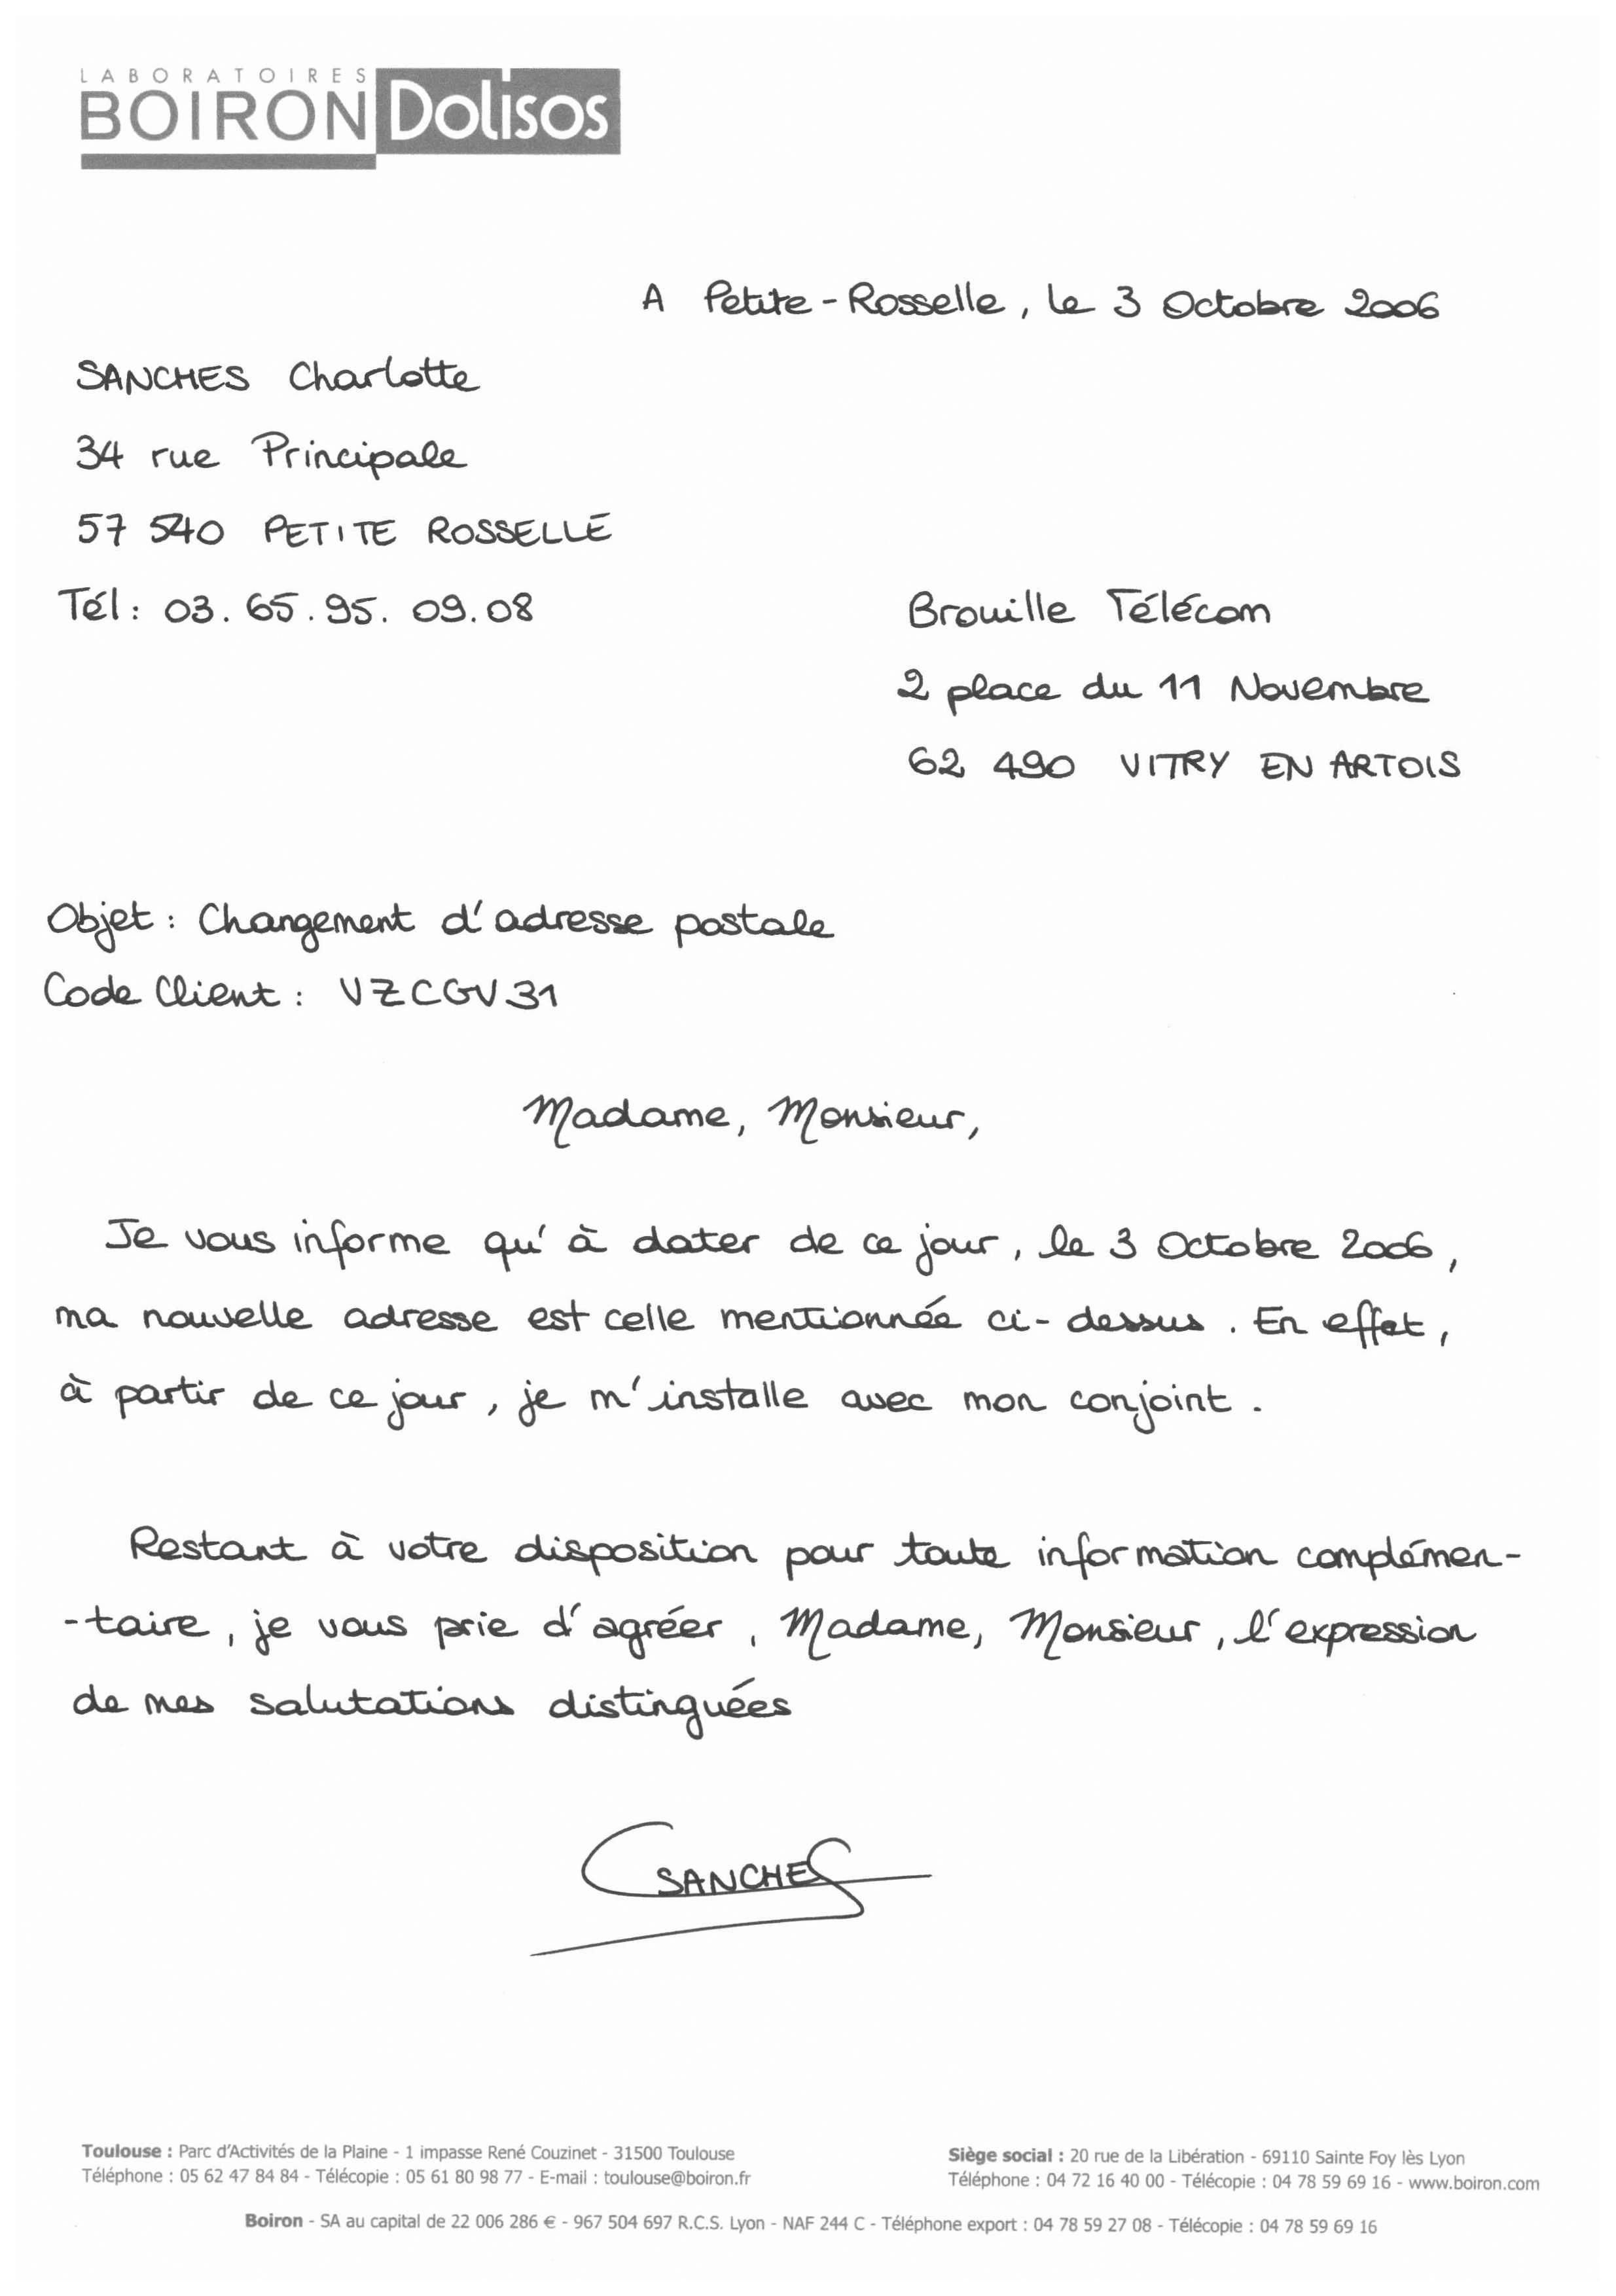 LABORATOIRES
BOIRON Dolisos
A Petite-Rosselle, le 3 Octobre 2006
SANCHES Charlotte
34 rue Principale
57 540 PETITE ROSSELLE
Tél: 03. 65. 95. 09. 08
Brouille Télécom
2 place du 11 Novembre
62 490 VITRY EN ARTOIS
Objet : Changement d'adresse postale
Code Client : VZCGV31
Madame, Monsieur,
Je vous informe qu'à dater de ce jour, le 3 Octobre 2006,
ma nouvelle adresse est celle mentionnée ci-dessus. En effet,
à partir de ce jour, je m'installe avec mon conjoint.
Restant à votre disposition pour toute information complémen-
-taire, je vous prie d'agréer, Madame, Monsieur, l'expression
de mes salutations distinguées
CSANCHES
Toulouse : Parc d'Activités de la Plaine - 1 impasse René Couzinet - 31500 Toulouse
Téléphone : 05 62 47 84 84 - Télécopie : 05 61 80 98 77 - E-mail : toulouse@boiron.fr
Siège social : 20 rue de la Libération - 69110 Sainte Foy lès Lyon
Téléphone : 04 72 16 40 00 - Télécopie : 04 78 59 69 16 - www.boiron.com
Boiron - SA au capital de 22 006 286 € - 967 504 697 R.C.S. Lyon - NAF 244 C - Téléphone export : 04 78 59 27 08 - Télécopie : 04 78 59 69 16